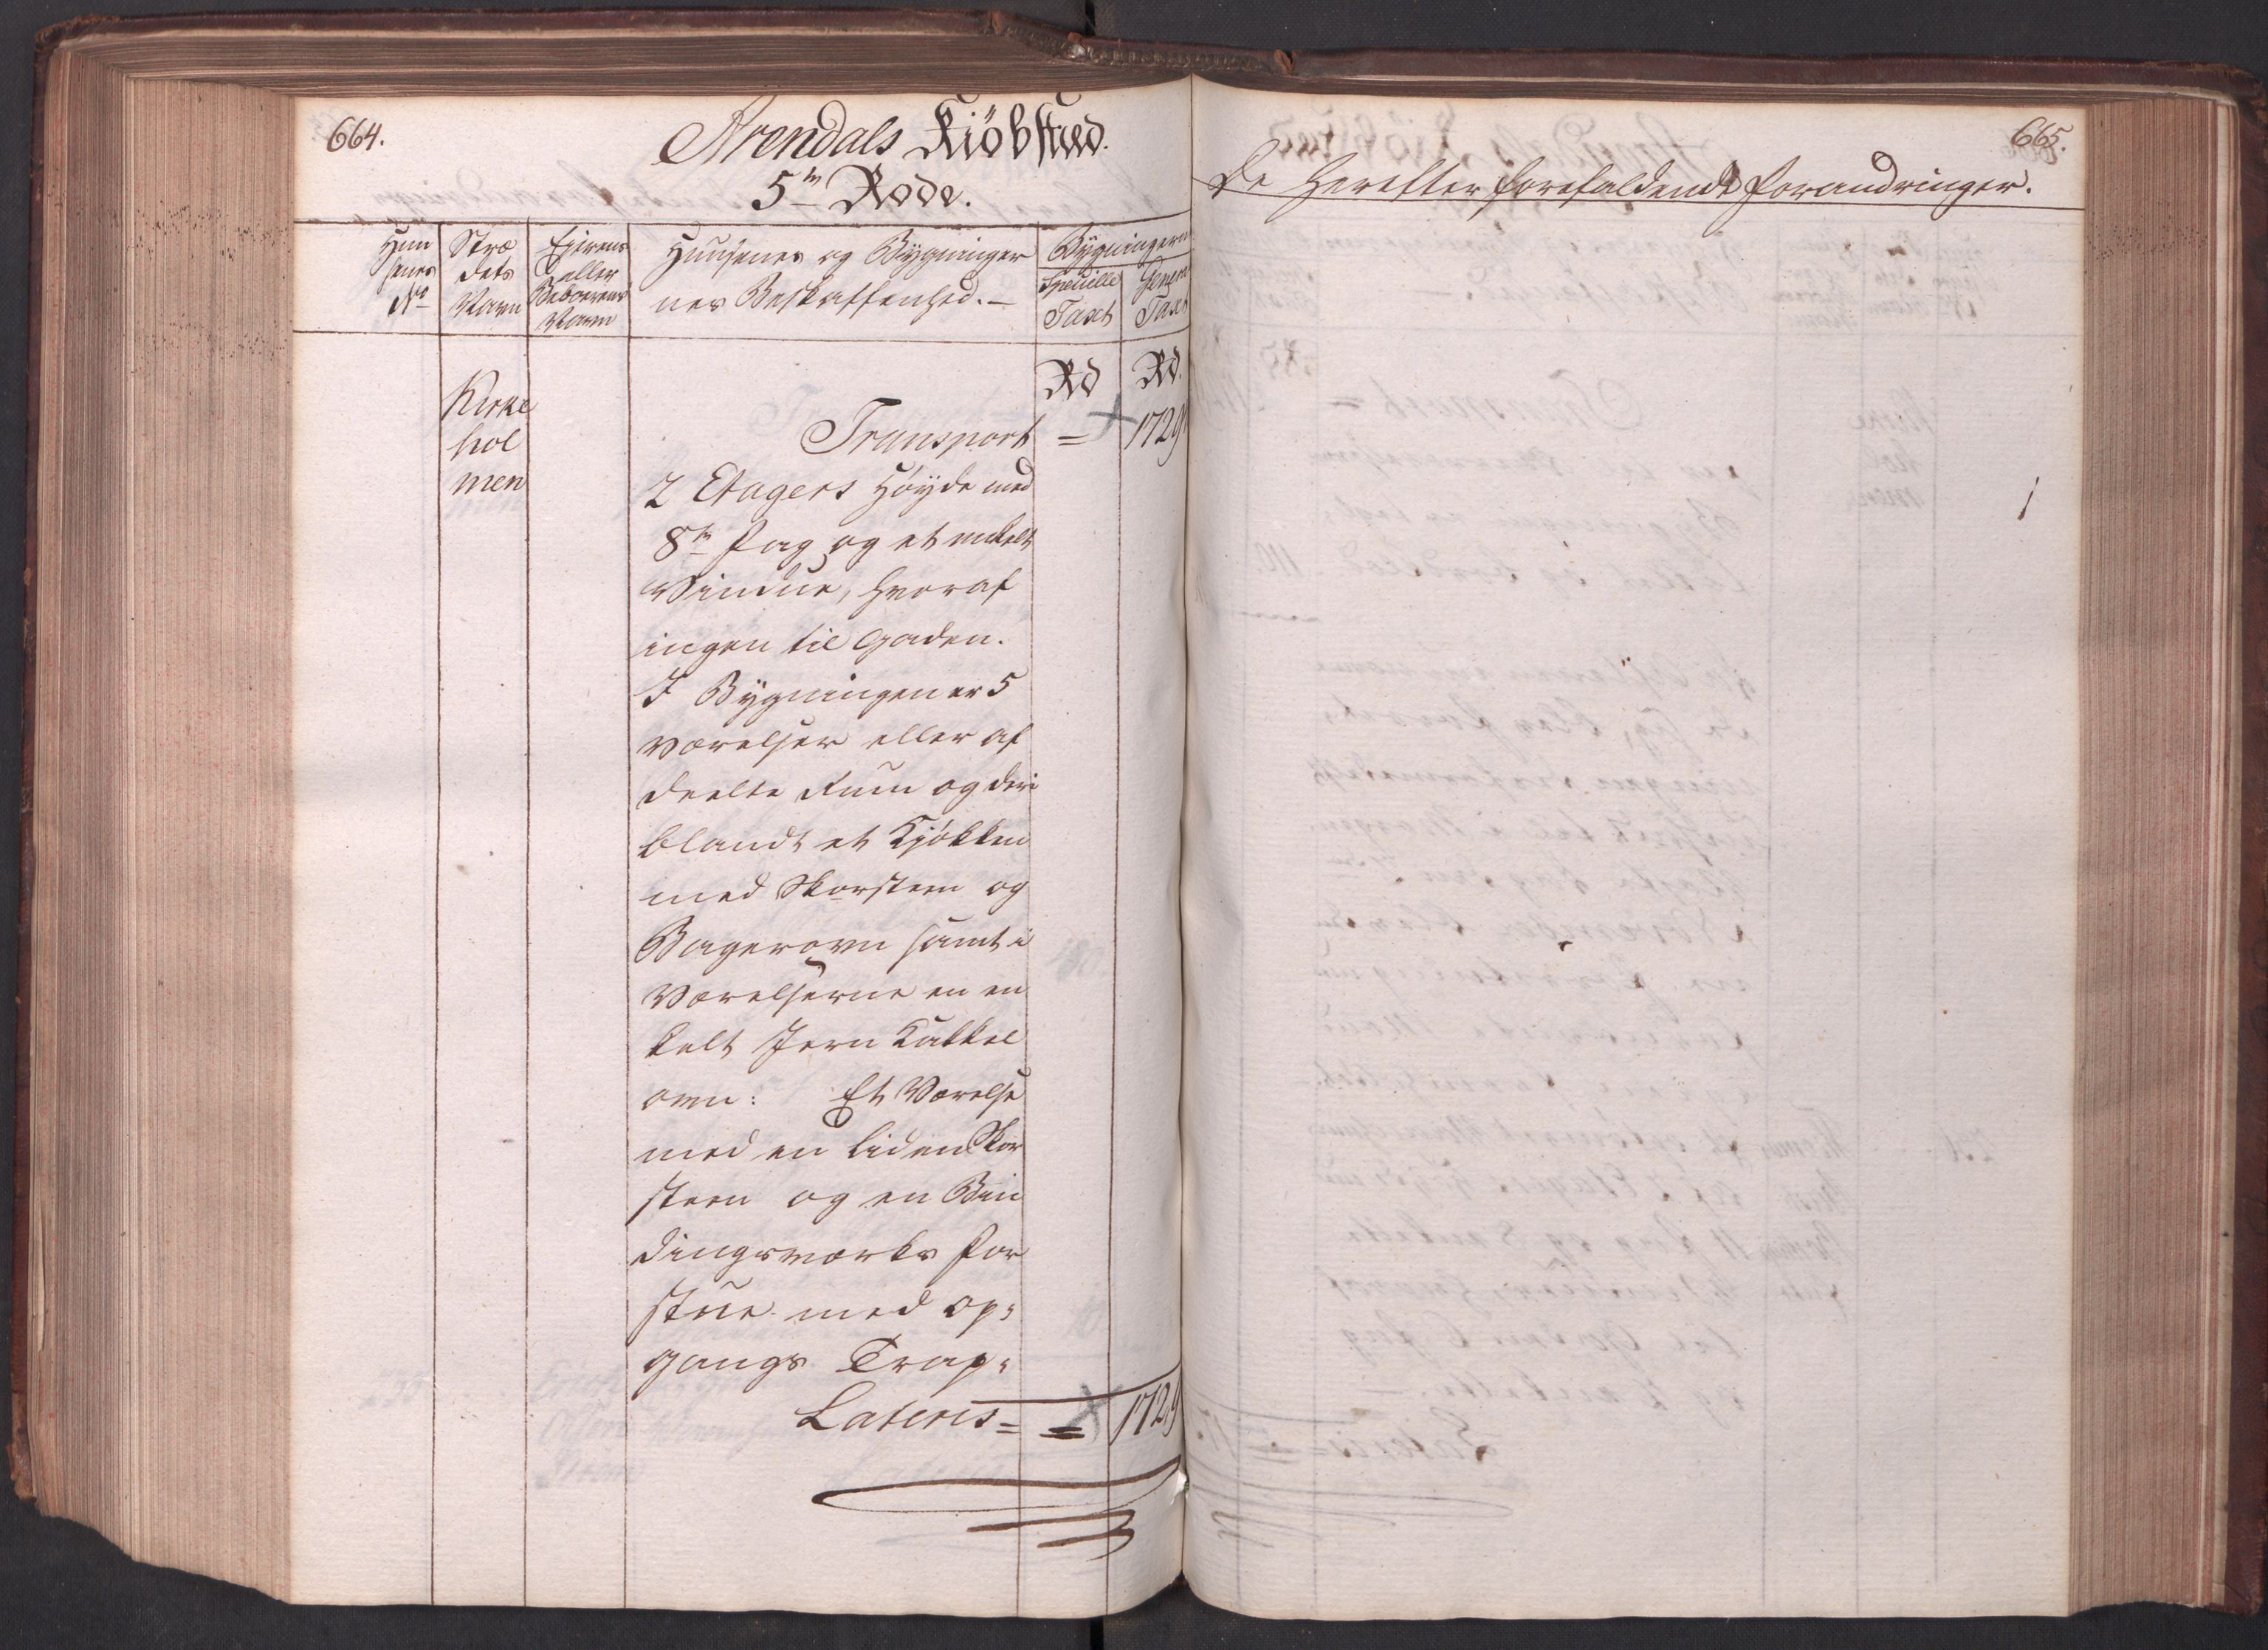 664.
Arendals Kiöbstæd.
5te Rode.
Huu
senes
No
Stræ
dets
Navn
Eierens
eller
Beboerens
Navn
Huusenes og Bygninger
nes Beskaffenhed. —
Bygningern
Specielle
Taxt
General
Taxt
Rd
Rd.
Kirke
hol
men
Transport = 1729
2 Etagers Høyde med
8te Fag og et enkelt
Vindue, hvoraf
ingen til Gaden.
I Bygningen er 5
Værelser eller af
deelte Rum og deri
blandt et Kjøkken
med Skorsteen og
Bagerovn samt i
Værelserne en en
kelt Jern Kakkel
ovn: Et Værelse
med en liden Skor
steen og en Bin
dingsværks For
stue med op-
gangs Trap-
Lateris = = 1729
665.
De herefter forefaldende Forandringer.